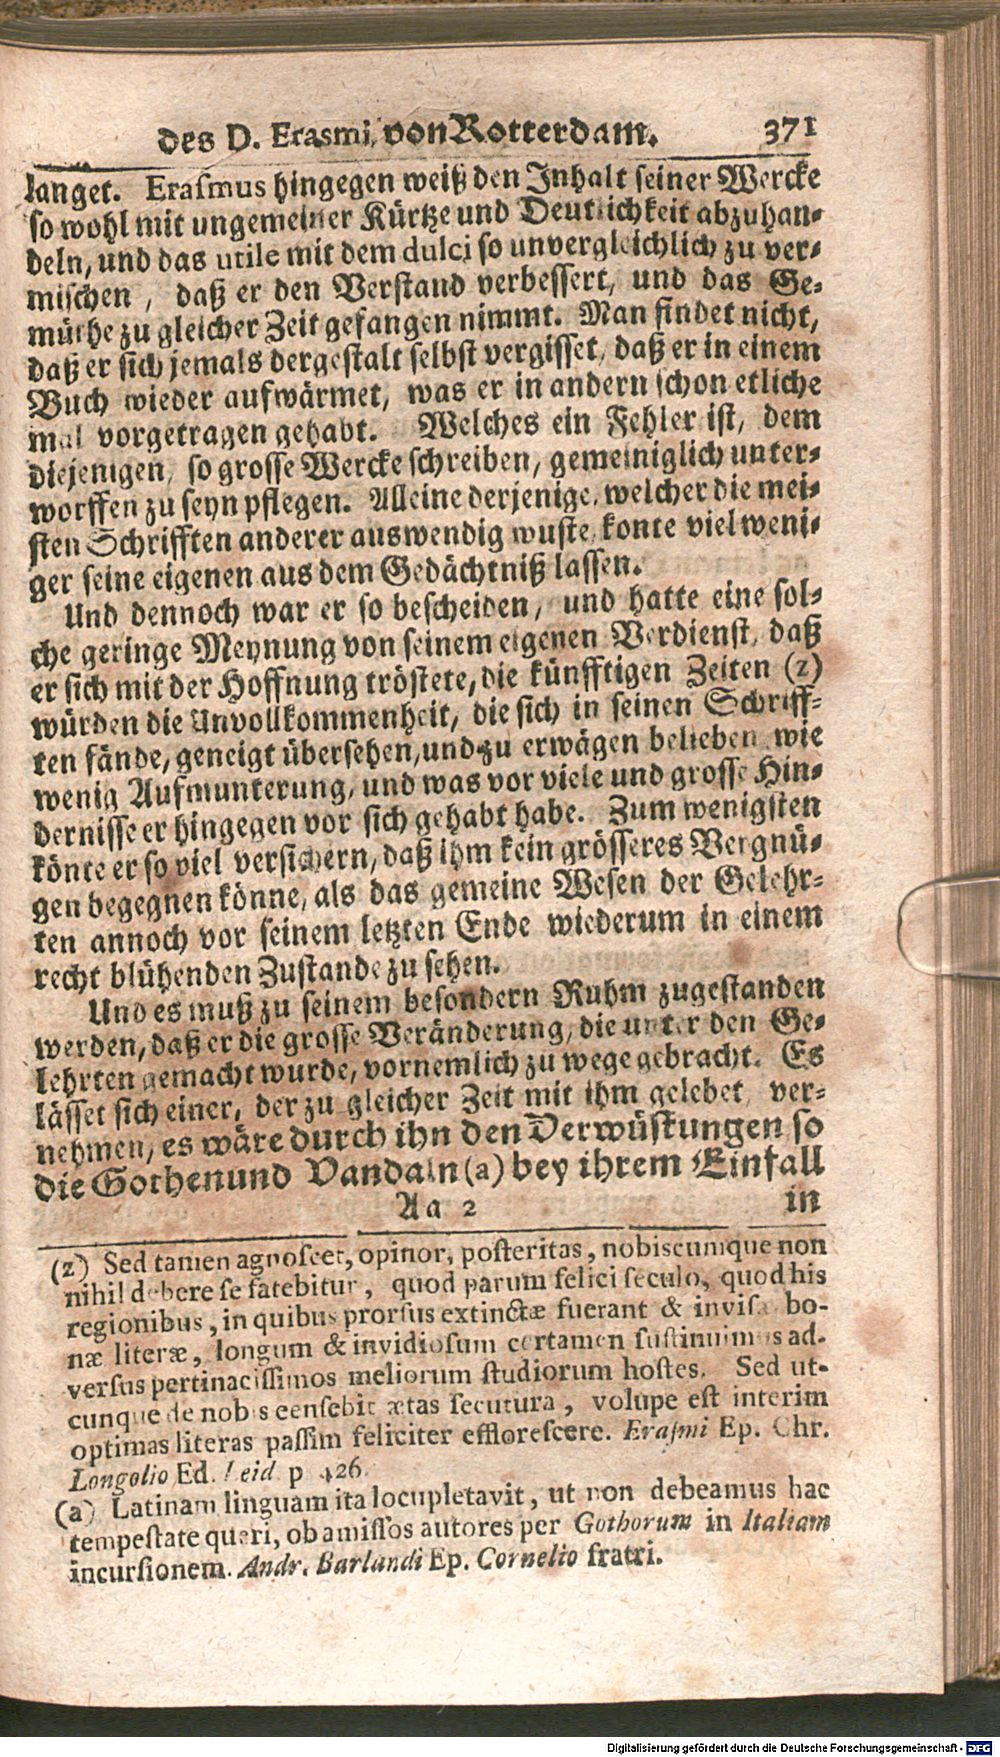 des D. Erasmi, von Rotterdam. 371
langet. Erasmus hingegen weiß den Inhalt seiner Wercke
so wohl mit ungemeiner Kürtze und Deutlichkeit abzuhan-
deln, und das utile mit dem dulci so unvergleichlich zu ver-
mischen, daß er den Verstand verbessert, und das Ge-
müthe zu gleicher Zeit gefangen nimmt. Man findet nicht,
daß er sich jemals dergestalt selbst vergisset, daß er in einem
Buch wieder aufwärmet, was er in andern schon etliche
mal vorgetragen gehabt. Welches ein Fehler ist, dem
diejenigen, so grosse Wercke schreiben, gemeiniglich unter-
worffen zu seyn pflegen. Alleine derjenige, welcher die mei-
sten Schrifften anderer auswendig wuste, konte viel weni-
ger seine eigenen aus dem Gedächtniß lassen.
Und dennoch war er so bescheiden, und hatte eine sol-
che geringe Meynung von seinem eigenen Verdienst, daß
er sich mit der Hoffnung tröstete, die künfftigen Zeiten (z)
würden die Unvollkommenheit, die sich in seinen Schriff-
ten fände, geneigt übersehen, und zu erwägen belieben, wie
wenig Aufmunterung, und was vor viele und grosse Hin-
dernisse er hingegen vor sich gehabt habe. Zum wenigsten
könte er so viel versichern, daß ihm kein grösseres Vergnü-
gen begegnen könne, als das gemeine Wesen der Gelehr-
ten annoch vor seinem letzten Ende wiederum in einem
recht blühenden Zustande zu sehen.
Und es muß zu seinem besondern Ruhm zugestanden
werden, daß er die grosse Veränderung, die unter den Ge-
lehrten gemacht wurde, vornemlich zu wege gebracht. Es
lässet sich einer, der zu gleicher Zeit mit ihm gelebet, ver-
nehmen, es wäre durch ihn den Verwüstungen, so
die Gothen und Vandaln (a) bey ihrem Einfall
Aa 2 in
(z) Sed tamen agnoscet, opinor, posteritas, nobiscumque non
nihil debere se fatebitur, quod parum felici seculo, quod his
regionibus, in quibus prorsus extinctæ fuerant & invisæ bo-
næ literæ, longum & invidiosum certamen sustinuimus ad-
versus pertinacissimos meliorum studiorum hostes. Sed ut-
cunque de nobis censebit ætas secutura, volupe est interim
optimas literas passim feliciter efflorescere. Erasmi Ep. Chr.
Longolio Ed. Leid. p. 426.
(a) Latinam linguam ita locupletavit, ut non debeamus hac
tempestate queri, ob amissos autores per Gothorum in Italiam
incursionem. Andr. Barlandi Ep. Cornelio fratri.
Digitalisierung gefördert durch die Deutsche Forschungsgemeinschaft - DFG